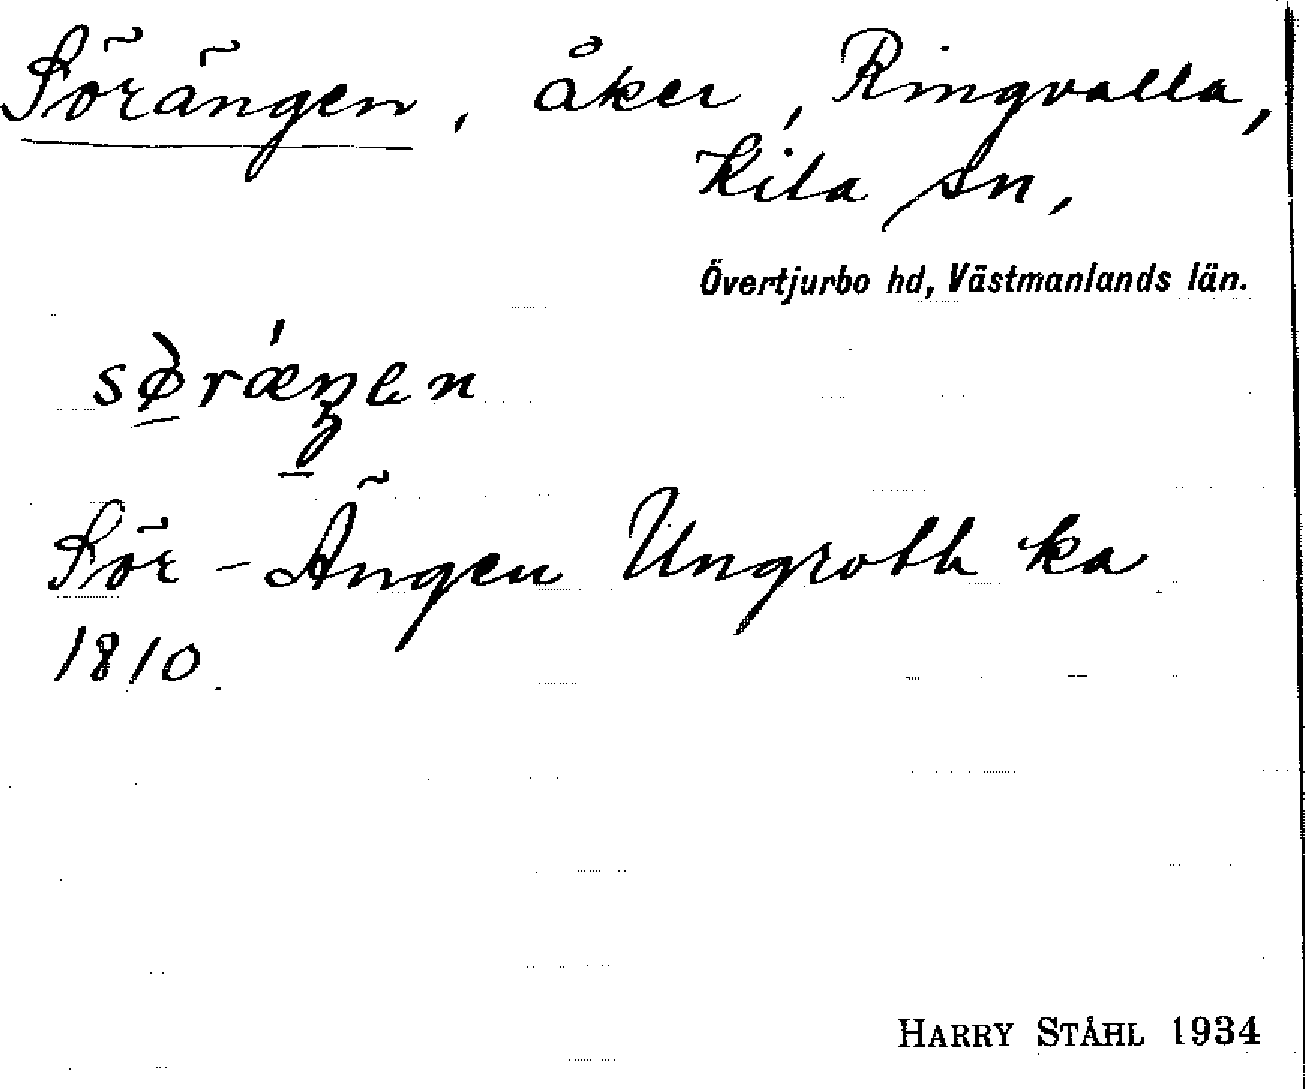 Sörängen, åker, Ringvalla,
Kila sn,
Övertjurbo hd, Västmanlands län.
Sör-Ängen Ungroth ka
1810
HARRY STÅHL 1934